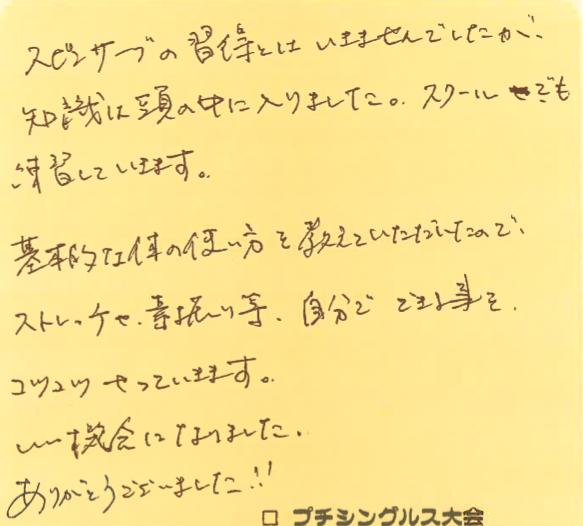 スピンサーブの習得とはいきませんでしたが、
知識は頭の中に入りました。スクールでも
練習しています。
基本的な体の使い方を教えていただいたので、
ストレッチや、素振り等、自分でできる事を、
コツコツやっています。
いい機会になりました。
ありがとうございました!!
□ プチシングルス大会